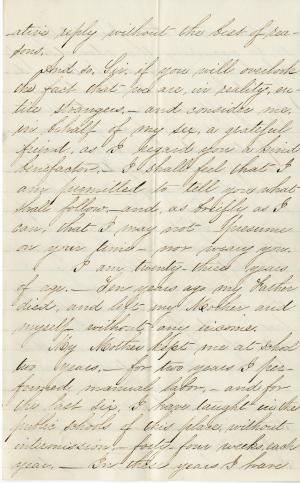 ative reply without the best of rea-
sons.
And so, Sir, if you will overlook
the fact that we are, in reality, en-
tire strangers, - and consider me,
in behalf of my sex, a grateful
friend, as I regard you a kind
benefactor, - I shall feel that I
am permitted to tell you what
shall follow, - and, as briefly as I
can, that I may not presume
on your time - nor weary you.
I am twenty-three years
of age. - Ten years ago my Father
died, and left my Mother and
myself without any income.
My Mother kept me at School
two years, - for two years I per-
formed manual labor, - and for
the last six, I have taught in the
public schools of this place, without
intermission, - forty-four weeks each
year. - In these years I have